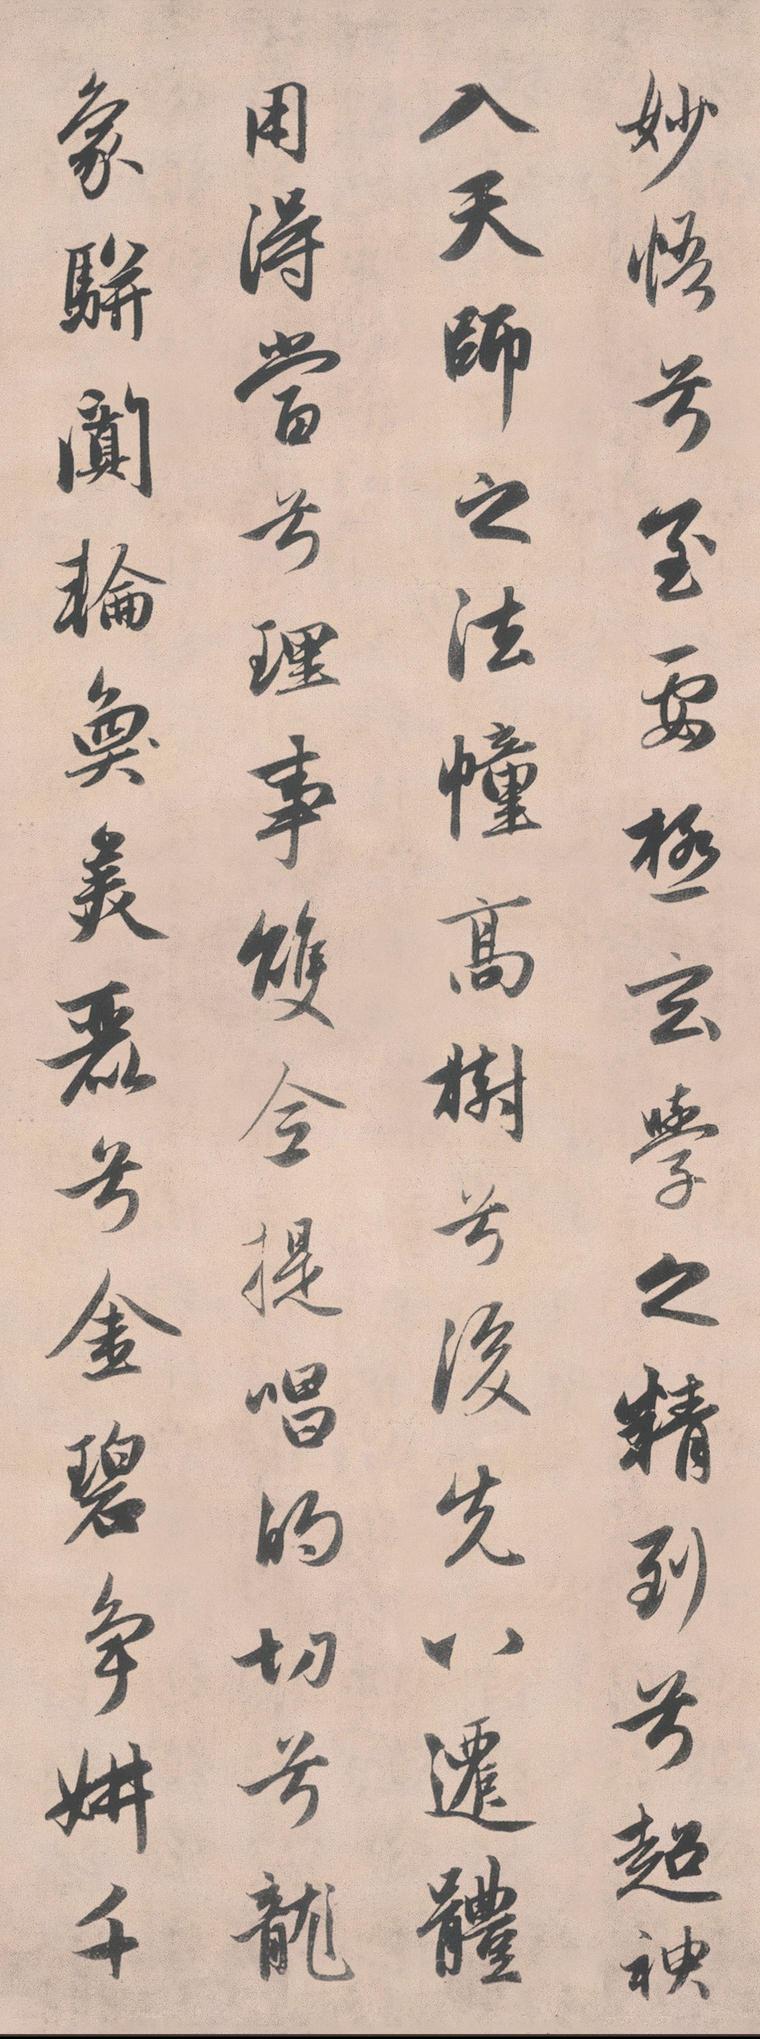 妙悟兮至要極玄學之精到兮超神
入天師之法幢高樹兮後先八遷體
用得當兮理事雙全提唱的切兮龍
象駢闐輪奐美麗兮金碧爭妍千